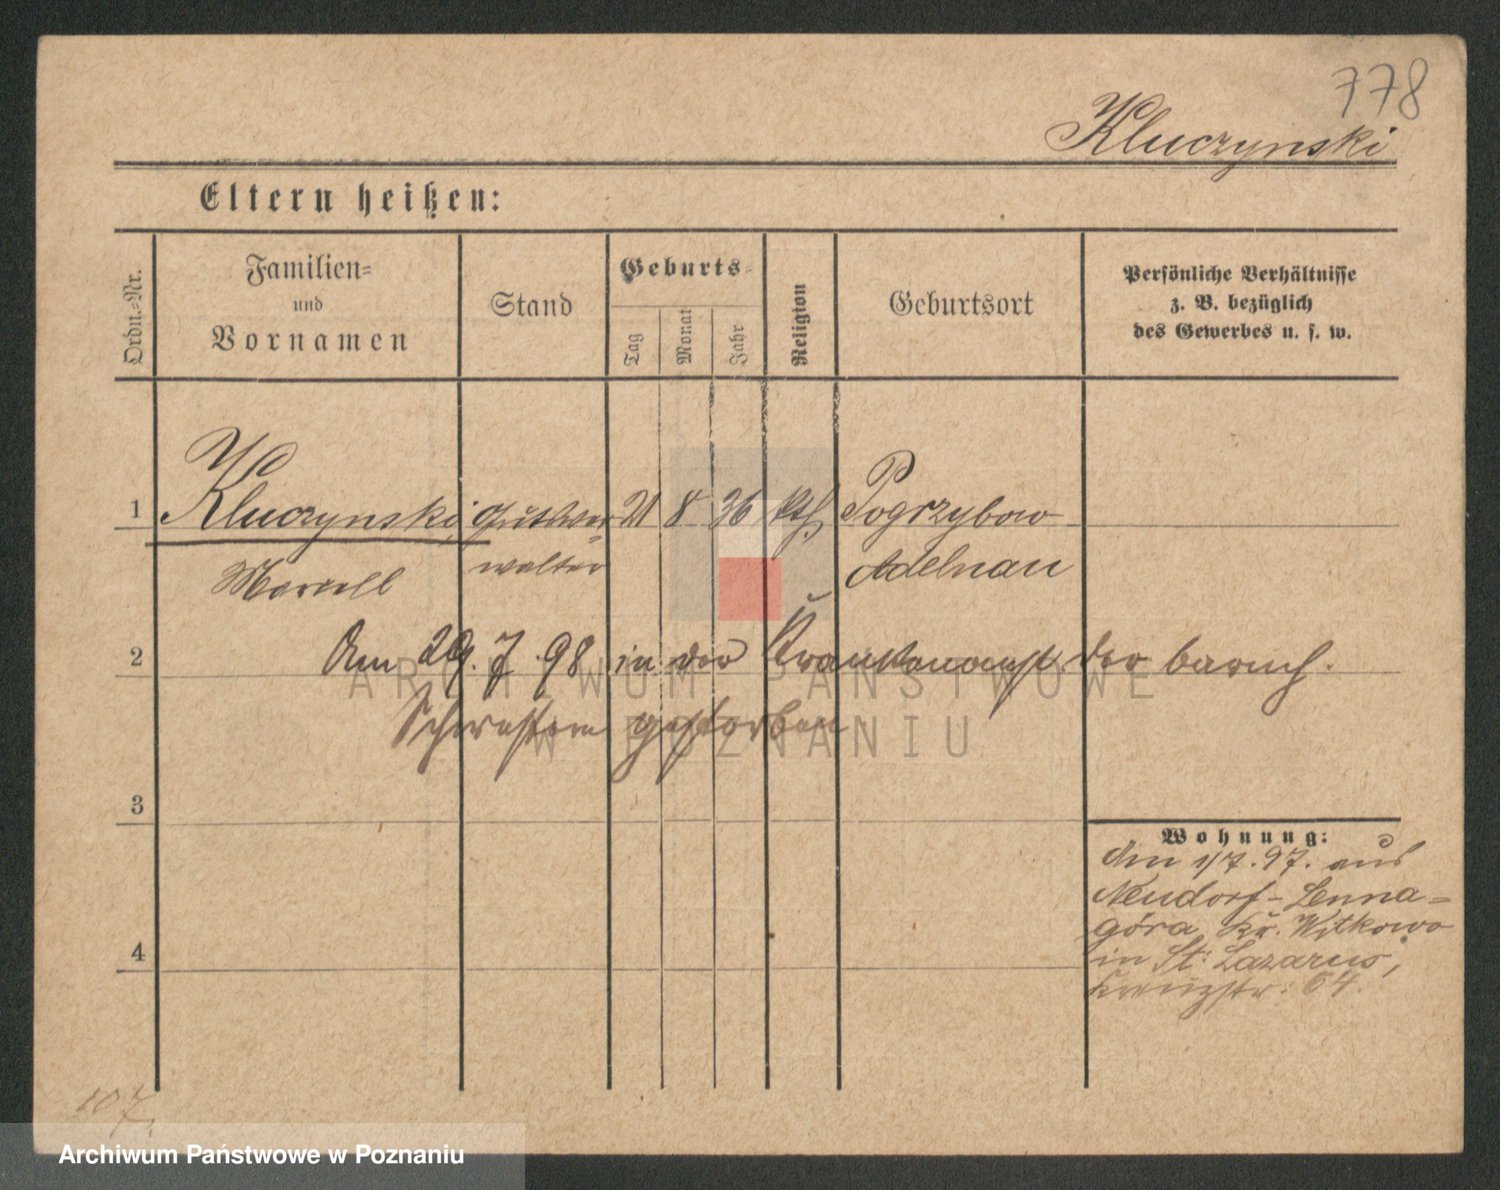 778
Kluczynski
Eltern heißen:
Ordn.-Nr.
Familien-
und
Vornamen
Stand
Geburts-
Tag
Monat
Jahr
Religion
Geburtsort
Persönliche Verhältnisse
z. B. bezüglich
des Gewerbes u. s. w.
1 Kluczynski Gutsver- 21 8 36 kth. Pogrzybow
Marcell walter Adelnau
2 Am 29.7.98 in der Krankenanst der barmh.
Schwestern gestorben
3
4
Wohnung:
Am 1/7.97. aus
Neudorf-Lenna-
góra Kr. Witkowo
in St. Lazarus,
Kreuzstr. 64.
107.
ARCHIWUM PAŃSTWOWE
W POZNANIU
Archiwum Państwowe w Poznaniu